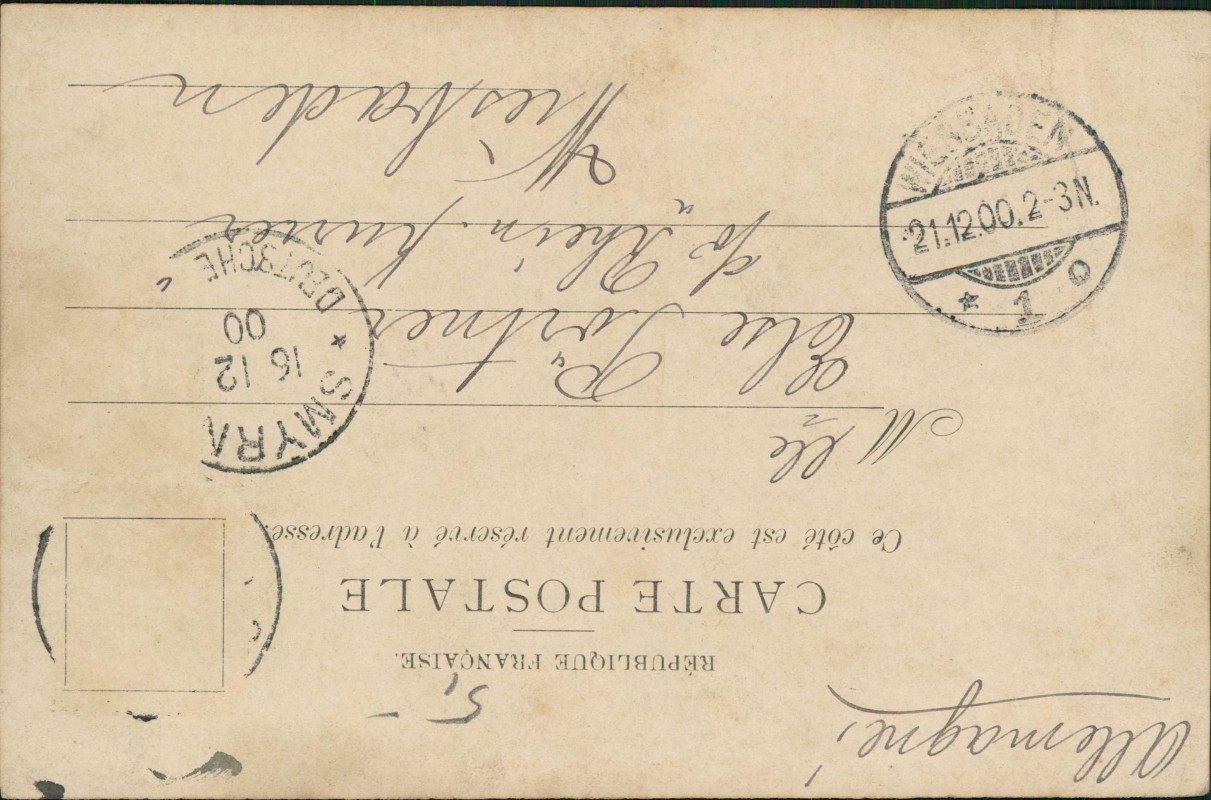 Allemagne!
5,-
RÉPUBLIQUE FRANÇAISE.
CARTE POSTALE
Ce côté est exclusivement réservé à l'adresse.
Mlle
Else Pörtner
Wiesbaden
SMYRN
16 12
00
* DEUTSCHE
WIESBADEN
21.12.00.2-3N.
* 1 o